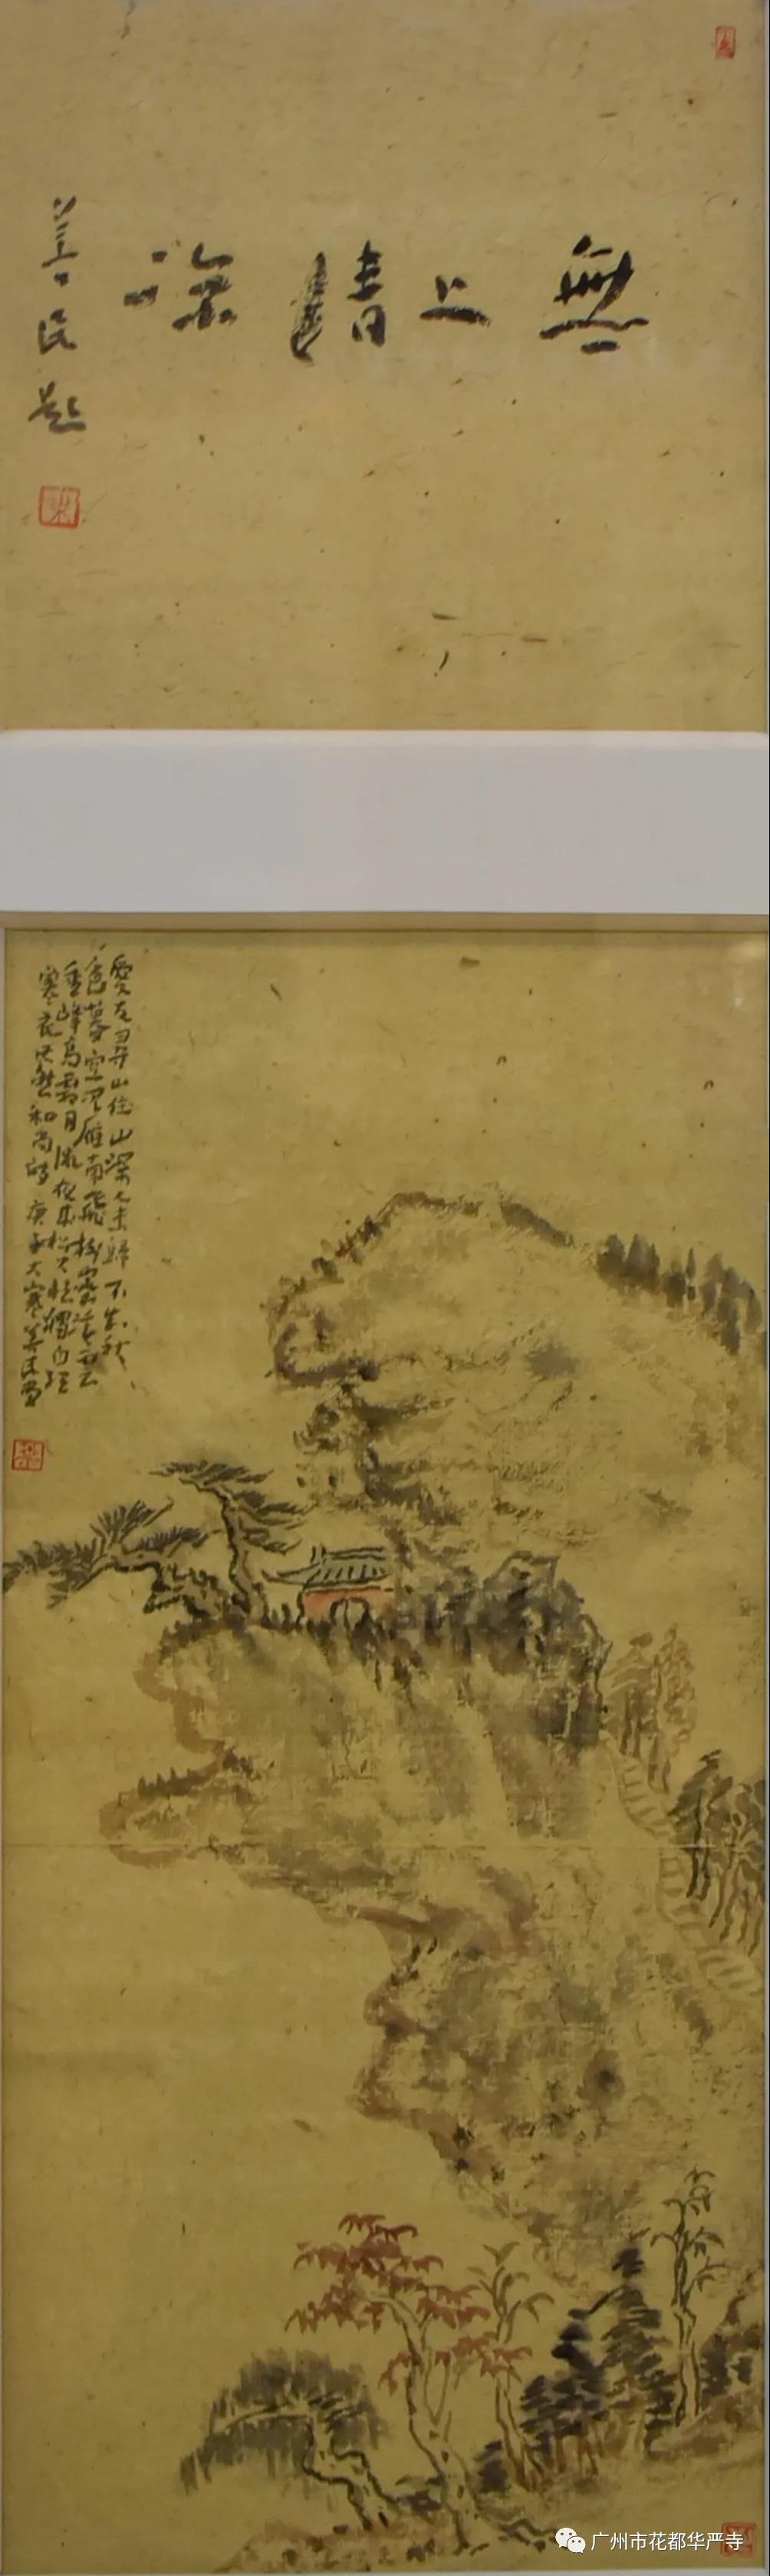 無上清涼
善民題
愛尋山山深未歸不知秋
色暮空見雁南飛樹密云
垂峰高霜月微夜來松火獨自
寒衣和尚詩庚子大寒善民寫
广州市花都华严寺